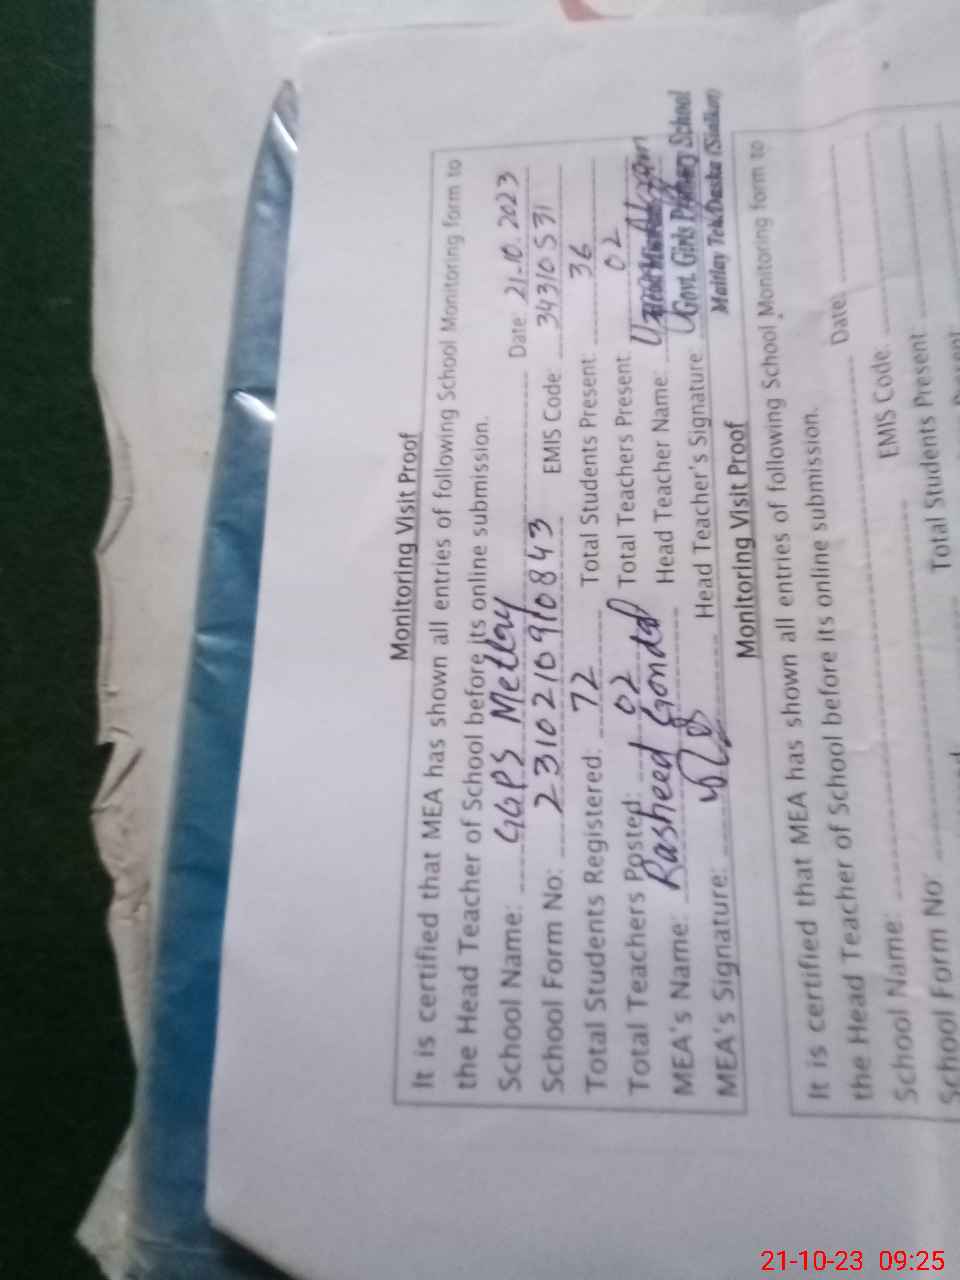 Monitoring Visit Proof
It is certified that MEA has shown all entries of following School Monitoring form to
the Head Teacher of School before its online submission.
School Name: GGPS Metlay Date: 21-10-2023
School Form No: 2310210910843 EMIS Code: 34310531
Total Students Registered: 72 Total Students Present: 36
Total Teachers Posted: 02 Total Teachers Present: 02
MEA's Name: Rasheed Gondal Head Teacher Name: Uzma Akram
MEA's Signature: Head Teacher's Signature:
Govt. Girls Primary School
Maitlay Teh: Daska (Sialkot)
Monitoring Visit Proof
It is certified that MEA has shown all entries of following School Monitoring form to
the Head Teacher of School before its online submission.
School Name: Date:
School Form No: EMIS Code:
Total Students Present
21-10-23 09:25